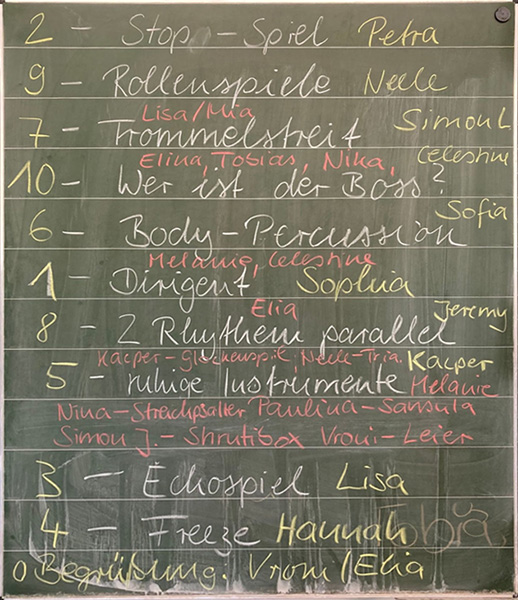 2 - Stop - Spiel Petra
9 - Rollenspiele Neele
Lisa/Mia
7 - Trommelstreit Simon L
Elina, Tobias, Nika, Celestine
10 - Wer ist der Boss?
Sofia
6 - Body - Percussion
Melanie, Celestine
1 - Dirigent Sophia
Elia Jeremy
8 - 2 Rhythem parallel
Kacper - Glockenspiel, Neele - Tria. Kacper
5 - ruhige Instrumente Melanie
Nina - Streichpsalter Paulina - Sansula
Simon J. - Shrutibox Vroni - Leier
3 - Echospiel Lisa
4 - Freeze Hannah
0 Begrüßung: Vroni / Elia